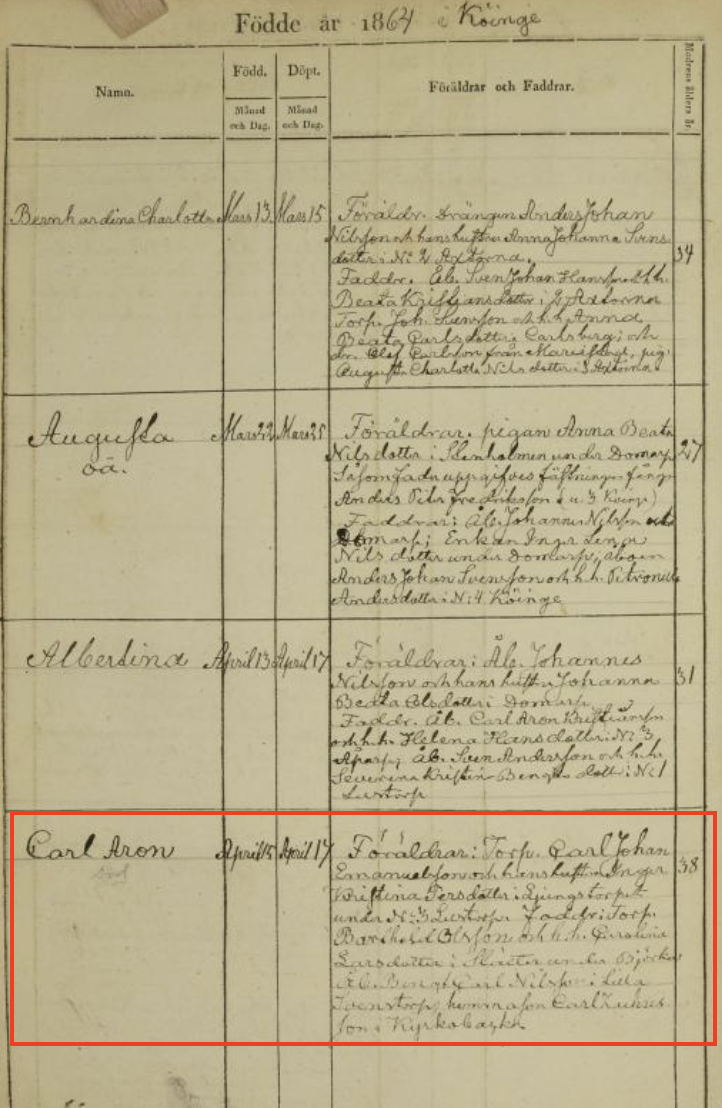 Födde år 1864 i Köinge
Namn.
Född.
Döpt.
Föräldrar och Faddrar.
Modrens ålders år.
Månad
och Dag.
Månad
och Dag.
Bernhardina Charlotta Mars 13 Mars 15 Föräldr. Drängen Anders Johan
Nilsson och hans hustru Anna Johanna Svens
dotter i N: 2 Axtorna. 34
Faddr. Åb. Sven Johan Hansson
Beata Kristjansdotter i 2 Axtorna
Torp. Joh. Svensson och h. h. Anna
Beata Carlsdotter i Carlsberg; och
dr. Olof Carlsson från pig.
Augusta Charlotta Nilsdotter i Axtorna.
Augusta Mars 22 Mars 25 Föräldrar. pigan Anna Beata
oä. Nilsdotter i Stenholmen under Domarp 27
Såsom fader uppgifves fästningsfången
Anders Peter Fredriksson (u. 3 Köinge)
Faddrar: Åb. Johannes Nilsson
Domarp; Enkan Inger Lena
Nilsdotter under Domarp; åboen
Anders Johan Svensson och h. h. Petronella
Andersdotter i N: 4 Köinge
Albertina April 13 April 17 Föräldrar: Åb. Johannes
Nilsson och hans hustru Johanna 31
Beata Olsdotter i Domarp.
Faddr. Åb. Carl Aron Kristiansson
och h. h. Helena Hansdotter i N: 3
Åparp; åb. Sven Andersson och h. h.
Severina Kristin Bengtsdotter i N: 1
Lustorp
Carl Aron April 15 April 17 Föräldrar: Torp. Carl Johan 38
död Emanuelsson och hans hustru Inger
Kristina Persdotter i Ljungstorpet
under N: 3 Lustorp. Faddr: Torp.
Barthold Olsson och h. h. Carolina
Larsdotter i under Björke
Åb. Bengt Carl Nilsson i Lilla
Svenstorp, hemmason Carl
son i